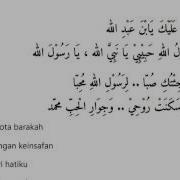 عَلَيْكَ يَابْنَ عَبْدِ الله
لُ اللهِ حَبِيْبِيْ يَا نَبِيَّ الله ، يَا رَسُوْلَ الله
جِئْتُكَ صَبًّا .. لِرَسُوْلِ اللهِ مُحِبًّا
سَكَنَتْ رُوْحِيْ .. وَجِوَارِ الْحِبِّ محمّد
ota barakah
ngan keinsafan
ri hatiku